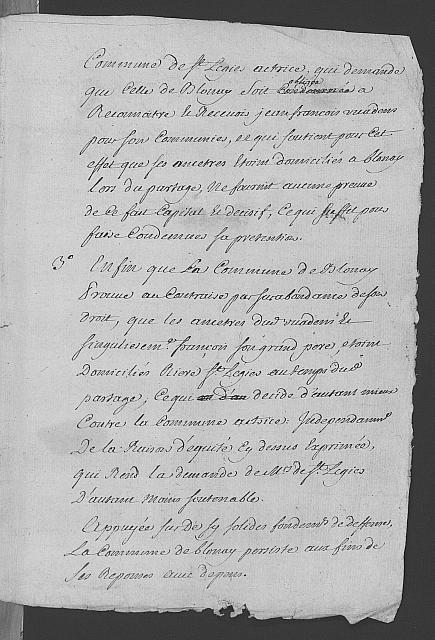 Commune de St Legier actrice, qui demande
que Celle de Blonay Soit obligée Condamnée a
Reconnoitre & Recevoir jean françois vuadens
pour son Communier, et qui soutient pour Cet
effet que ses ancetres Etoint domiciliés a blonay
lors du partage, Ne fournit aucune preuve
de Ce fait Capital & decisif, Ce qui suffit pour
faire Condamner sa pretention.
3° Enfin que La Commune de Blonay
Prouve au Contraire par surabondance de son
droit, que les ancetres dud. vuadens Et
singulieremt. françois son grand pere, etoint
Domiciliés Riere St Legier au temps dud.
partage; Ce qui decide d'autant mieux
Contre la Commune actrice. Independamt.
De la Raison d'equité Cy dessus Exprimée,
qui Rend la demande de Mrs. de St Legier
D'autant moins soutenable.
Appuyée sur De sy solides fondemts. de deffense,
La Commune de blonay persiste aux fins de
ses Reponses avec depens.